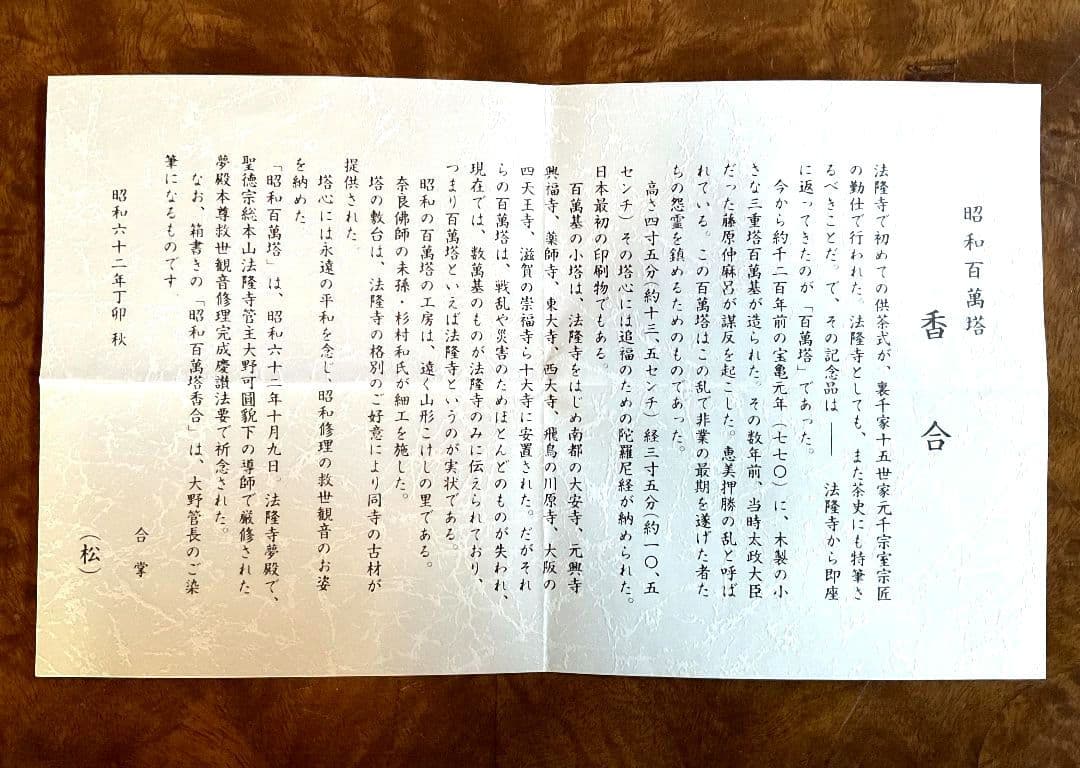 昭和百萬塔
香合
法隆寺で初めての供茶式が、裏千家十五世家元千宗室宗匠
の勤仕で行われた。法隆寺としても、また茶史にも特筆さ
るべきことだ。で、その記念品は――　法隆寺から即座
に返ってきたのが「百萬塔」であった。
今から約千二百年前の宝亀元年（七七〇）に、木製の小
さな三重塔百萬基が造られた。その数年前、当時太政大臣
だった藤原仲麻呂が謀反を起こした。恵美押勝の乱と呼ば
れている。この百萬塔はこの乱で非業の最期を遂げた者た
ちの怨霊を鎮めるためのものであった。
高さ四寸五分（約十三、五センチ）経三寸五分（約一〇、五
センチ）その塔心には追福のための陀羅尼経が納められた。
日本最初の印刷物でもある。
百萬基の小塔は、法隆寺をはじめ南都の大安寺、元興寺
興福寺、薬師寺、東大寺、西大寺、飛鳥の川原寺、大阪の
四天王寺、滋賀の崇福寺ら十大寺に安置された。だがそれ
らの百萬塔は、戦乱や災害のためほとんどのものが失われ、
現在では、数萬基のものが法隆寺のみに伝えられており、
つまり百萬塔といえば法隆寺というのが実状である。
昭和の百萬塔の工房は、遠く山形こけしの里である。
奈良佛師の末孫・杉村和氏が細工を施した。
塔の敷台は、法隆寺の格別のご好意により同寺の古材が
提供された。
塔心には永遠の平和を念じ、昭和修理の救世観音のお姿
を納めた
「昭和百萬塔」は、昭和六十二年十月九日。法隆寺夢殿で、
聖徳宗総本山法隆寺管主大野可圓貌下の導師で厳修された
夢殿本尊救世観音修理完成慶讃法要で祈念された。
なお、箱書きの「昭和百萬塔香合」は、大野管長のご染
筆になるものです
昭和六十二年丁卯 秋
合掌
（松）